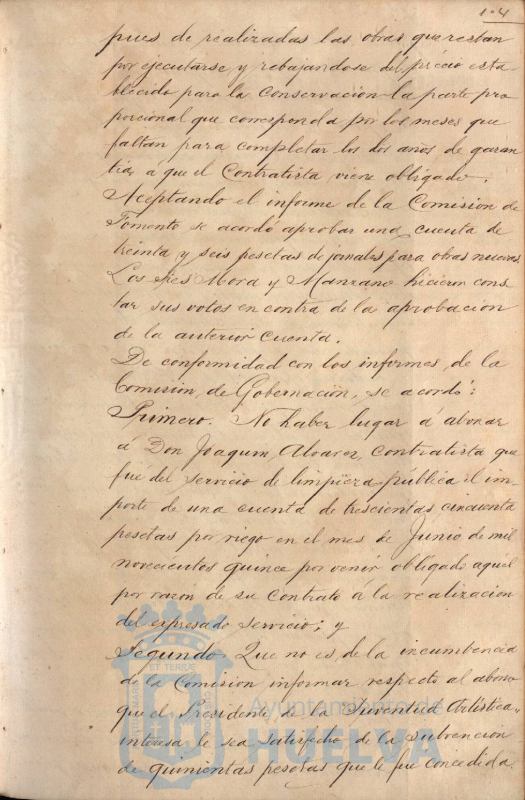 104
pues de realizadas las obras que restan
por ejecutarse y rebajandose del precio esta-
blecido para la conservacion la parte pro
porcional que corresponda por los meses que
faltan para completar los dos años de garan
tia, á que el Contratista viene obligado.
Aceptando el informe de la Comision de
Fomento se acordó aprobar una cuenta de
treinta y seis pesetas de jornales para obras nuevas
Los Sres Mora y Manzano hicieron cons
tar sus votos en contra de la aprobacion
de la anterior cuenta.
De conformidad con los informes, de la
Comisión, de Gobernación, se acordó:
Primero. No haber lugar á abonar
á Don Joaquin Alvarez, contratista que
fué del servicio de limpieza pública el im-
porte de una cuenta de trescientas cincuenta
pesetas por riego en el mes de Junio de mil
novecientos quince por venir obligado aquel
por razón de su contrato á la realizacion
del expresado servicio; y
Segundo. Que no es, de la incumbencia
de la Comisión informar respecto al abono
que el Presidente, de la Juventud Artística,
interesa le sea satisfecho de la subvencion
de quinientas pesetas que le fué concedida.
Ayuntamiento de
HUELVA